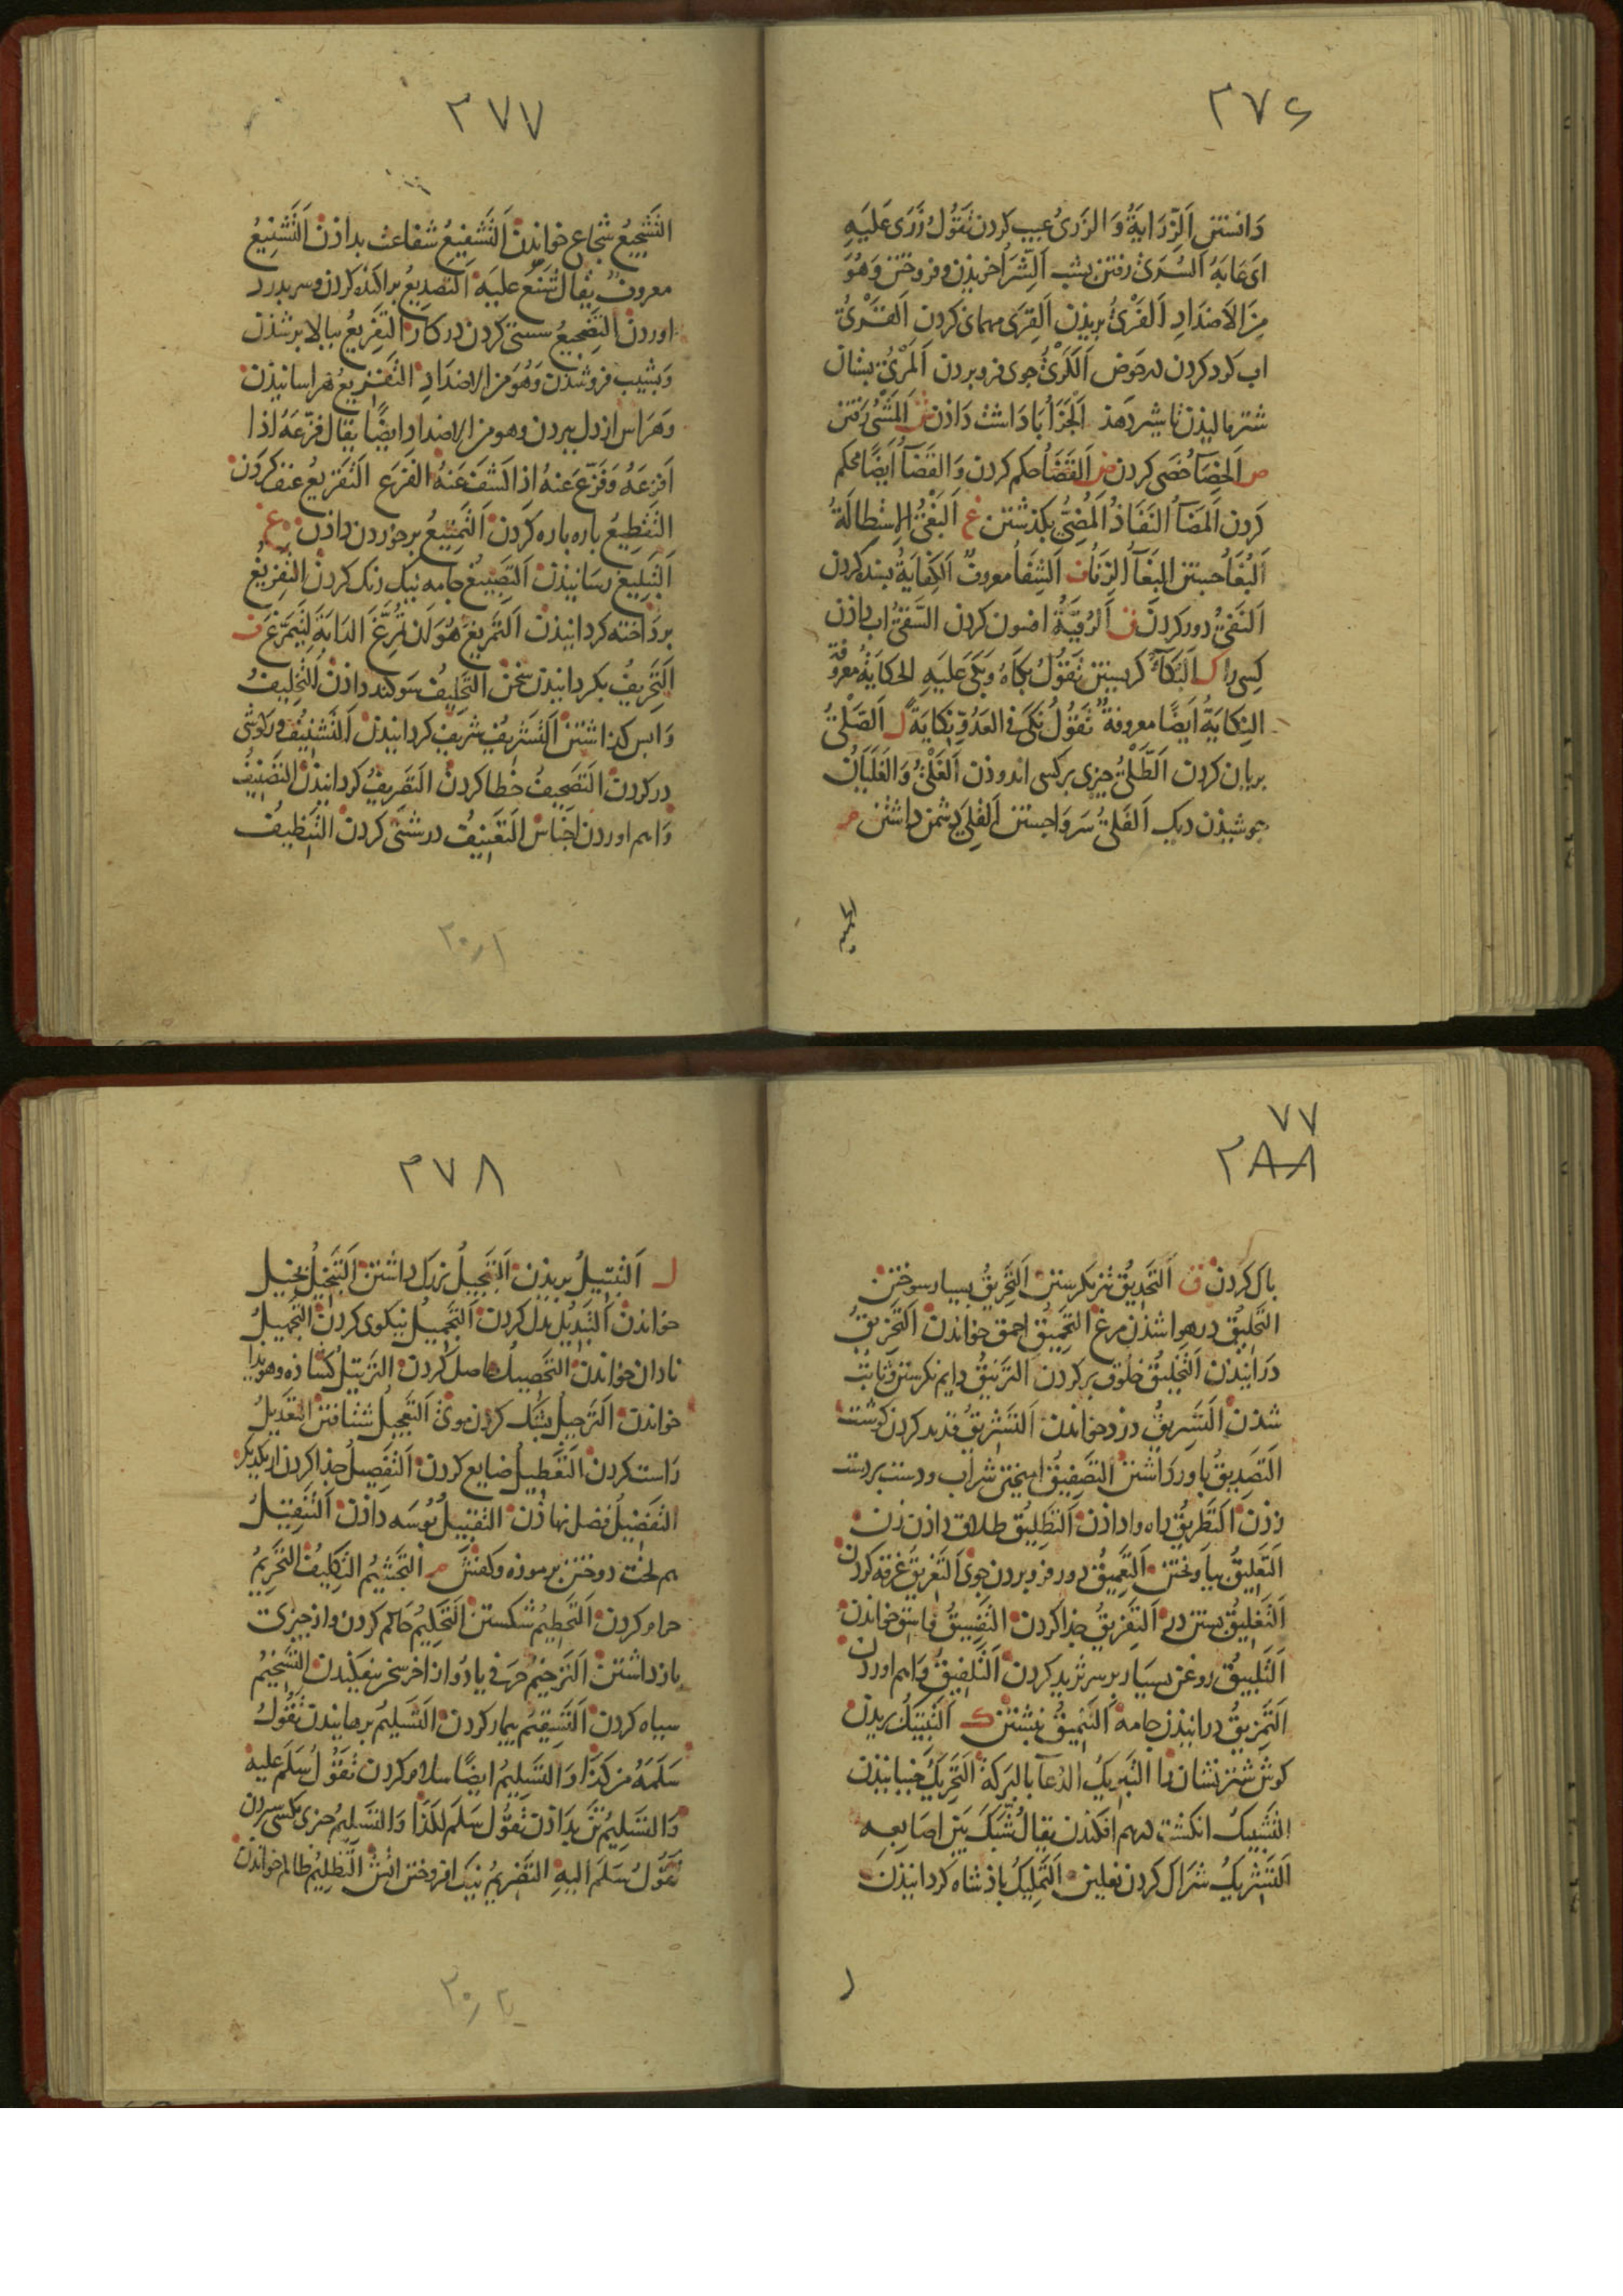 ۳۷۶
دَانستن اَلزِّرَايَةُ وَالزَرىُ عيب كردن تَقُولُ زَرَى عَلَيهِ
اى عَابَهُ السُرَىٰ رفتن بشب اَلشِّرَا خريذن و فروختن وَهُوَ
مِنَ الاَضدَادِ اَلفَرْىُ بريذن اَلقِرَى مهمانى كردن اَلقَرْىُ
اب كرد كردن در حَوض اَلكَرْىُ جوى فرو بردن اَلمَرْىُ بستان
شتر ماليذن تا شير دَهذ اَلجَزَاُ بَادَاشت دَاذن ش اَلمَشْىُ رَفتن
ص اَلخِصَآُ خُصَى كردن ض اَلقَضَاُ حكم كردن وَالقَضَآُ اَيضًا محكم
كَردن اَلمَضَآُ النَفَاذُ اَلمُضِىُّ بكذشتن غ اَلبَغْىُ الاِستِطالَةُ
اَلبُغَاُ جستن البِغَآُ الزِنَاُ ف اَلشِفَاُ معروفٌ اَلكِفَايَةُ بسنده كردن
اَلنَفْىُ دور كردن ق اَلرُقيَةُ افسون كردن السَقىُ اب داذن
كِسى را ك اَلبُكَآُ كريستن تَقُولُ بَكَاهُ وَبَكَى عَلَيهِ الحكَايَةُ معروفة
النِكايَةُ اَيضًا معروفةٌ تَقُولُ نَكَى فى العَدُوِّ نِكايَةً ل اَلصَلْىُ
بريان كردن اَلطَلْىُ چيزى بر كسى اندوذن اَلغَلْىُ وَالغَلَيَانُ
جوشيذن ديك اَلفَلىُ سَر وَاجستن اَلقِلَى دشمن داشتن م
۳۷۷
التَشجِيعُ شجاع خواندن اَلتَشفِيعُ شفاعت بداذن اَلتَشنِيعُ
معروفٌ يقال شَنَّعَ عليَهِ اَلتَصدِيعُ براكنده كردن و سر بدرد
اوردن التَضجِيعُ سستى كردن در كار التَفرِيعُ ببالا بر شذن
وَبشيب فرو شذن وَهُوَ من الاضدَادِ التَفزِيعُ هراسانيذن
وهَرَاس از دل ببردن وهو من الاضداد ايضًا يقال فزّعَهُ اذا
اَفزعَهُ وَفَزّعَ عَنهُ اذا كشفَ عَنهُ الفزع اَلتَقرِيعُ عنف كردن
التَقطِيعُ باره باره كردن اَلتَمتِيعُ برخوردن داذن غ
اَلتَبلِيغ رسَانيذن اَلتَصبِيغ جامه نيك رنك كردن التَفرِيغُ
بردَاخته كردانيذن اَلتَمرِيغ هُوَ اَن تُمَرِّغَ الدَابَةَ لِتَتَمَرَّغ ف
اَلتَحرِيفُ بكردانيذن سخن التَحلِيفُ سَوكند داذن اَلتَخلِيفُ
وَابس كذاشتن اَلتَشرِيفُ شريف كردانيذن اَلتَشنِيفُ كوشى
در كردن التَصحِيفُ خطا كردن التَصرِيفُ كردانيذن التَصنِيفُ
وَاهم اوردن اجناس التَعنِيفُ درشتى كردن التَنظِيفُ
۷۷
۳۸۸
باك كردن ق اَلتَحدِيقُ تيز نكرستن اَلتَحرِيقُ بسيار سوختن
التَحلِيقُ در هوا شذن مرغ التَحمِيقُ احمق خواندن اَلتَخرِيقُ
دَرانيذن اَلتَخلِيقُ خلوق بر كردن اَلترنِيقُ دايم نكرستن و ثابت
شذن اَلتَسرِيقُ دزد خواندن اَلتَشرِيقُ قديد كردن كوشت
اَلتَصدِيقُ باور دَاشتن التَصفِيقُ اميختن شراب و دست بر دست
زدن اَلتَطرِيقُ راه وا داذن اَلتَطلِيقُ طلاق داذن زن
اَلتَعلِيقُ بياونختن اَلتَعمِيقُ دور فرو بردن جوى اَلتَغرِيقُ غرقه كردن
اَلتَغلِيقُ بستن در اَلتَفرِيقُ جذا كردن التَفسِيقُ فاسق خواندن
اَلتَلبِيقُ روغن بسيار بر سر ثريد كردن اَلتَلفِيقُ وَاهم اوردن
اَلتَمزِيقُ درانيذن جامه اَلتَنمِيقُ نبشتن ك اَلتَبتِيكُ بريدن
كوش شتر نشان را التَبرِيكُ الدُعآ بالبَركةِ اَلتَحرِيكُ جنبانيذن
التَشبِيكُ انكشت درهم افكندن يقال شَبَّكَ بَينَ اَصَابِعِهِ
اَلتَشرِيكُ شراك كردن نعلين اَلتَملِيكُ باذشاه كردانيذن
۳۷۸
ل اَلتَبتِيلُ بريذن اَلتَبجِيلُ بزرك داشتن اَلتَبخِيلُ بخيل
خواندن اَلتَبدِيلُ بدل كردن اَلتَجمِيلُ نيكوى كردن اَلتَجهِيلُ
نادان خواندن اَلتَحصِيلُ حاصل كردن التَرتِيلُ كشاذه و هويدا
خواندن اَلتَرجِيلُ بشنك كردن موى اَلتَعجِيلُ شتافتن التَعدِيلُ
رَاست كردن اَلتَعطِيلُ ضايع كردن اَلتَفصِيلُ جذا كردن از يكديكر
التَفضِيلُ فضل نهاذن التَقبِيلُ بُوسَه داذن اَلتَنقِيلُ
هم لخت دوختن بر موزه و كفش م اَلتَجشِيمُ التَكلِيفُ التَحرِيمُ
حرام كردن اَلتَحطِيمُ شكستن اَلتَحكِيمُ حاكم كردن و از چيزى
باز داشتن اَلتَرخِيمُ حرفى يا دُو از اخر سخن بيفكندن التَسخِيمُ
سياه كردن اَلتَسقِيمُ بيمار كردن اَلتَسلِيمُ برهانيدن تَقُولُ
سَلمَهُ من كَذَا وَالتسلِيمُ ايضًا سلام كردن تَقُولُ سَلَّمَ عليه
وَالتَسلِيمُ تن بداذن تَقُولُ سَلَّمَ لكذا وَالتَسلِيمُ چيزى بكسى سپردن
تَقُولُ سَلَّمَ اليهِ التَضرِيمُ نيك افروختن اتش التَظلِيمُ ظالم خواندن